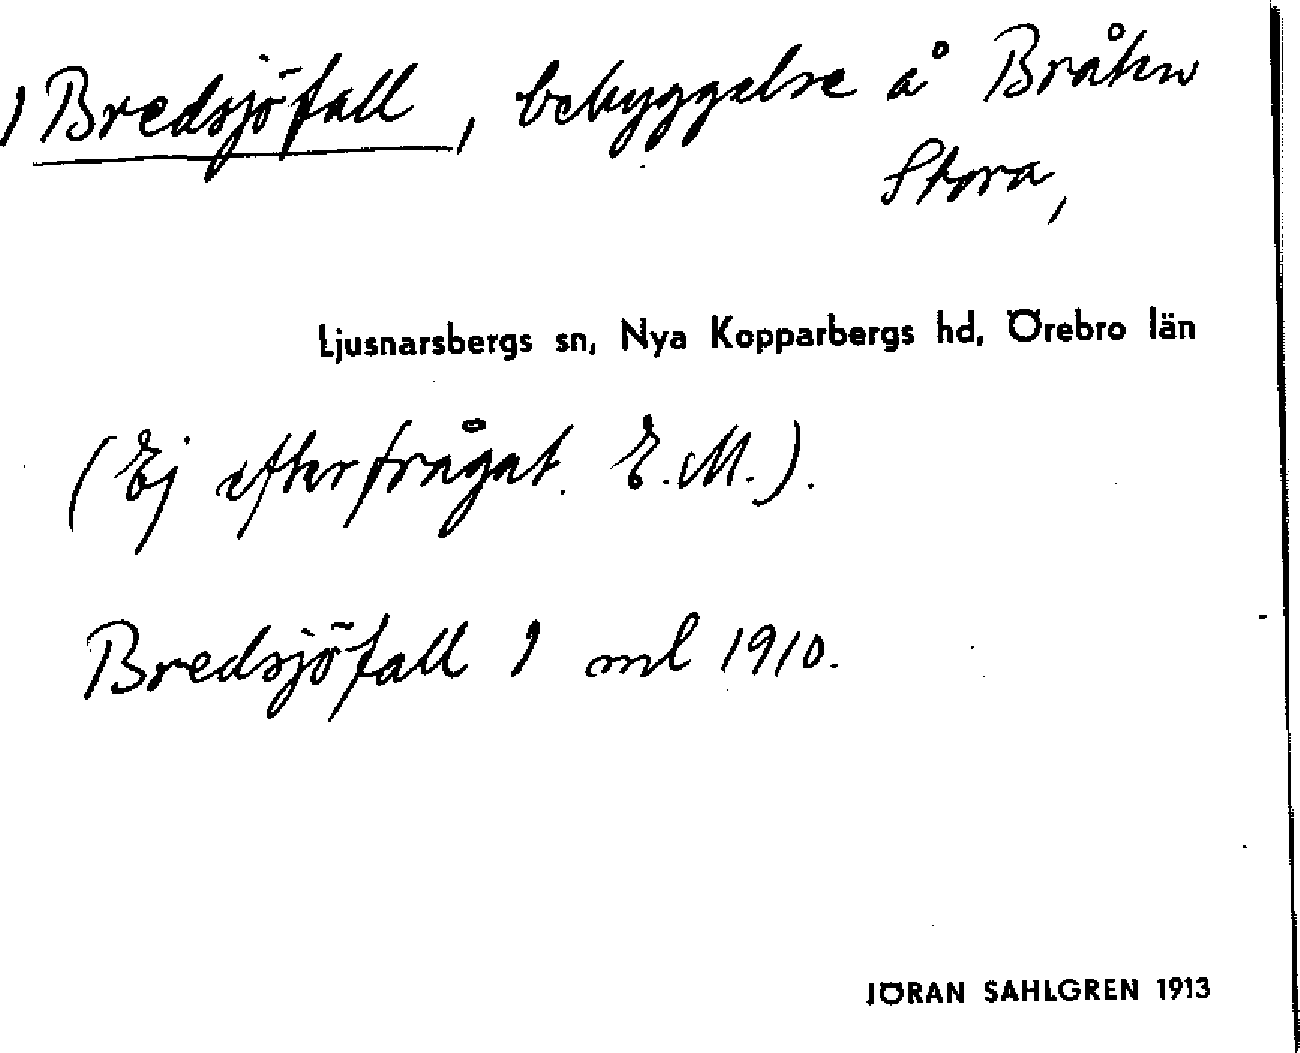 1 Bredsjöfall, bebyggelse å Bråten
Stora,
Ljusnarsbergs sn, Nya Kopparbergs hd, Örebro län
(Ej efterfrågat. E.M.).
Bredsjöfall 1 ml 1910.
JÖRAN SAHLGREN 1913